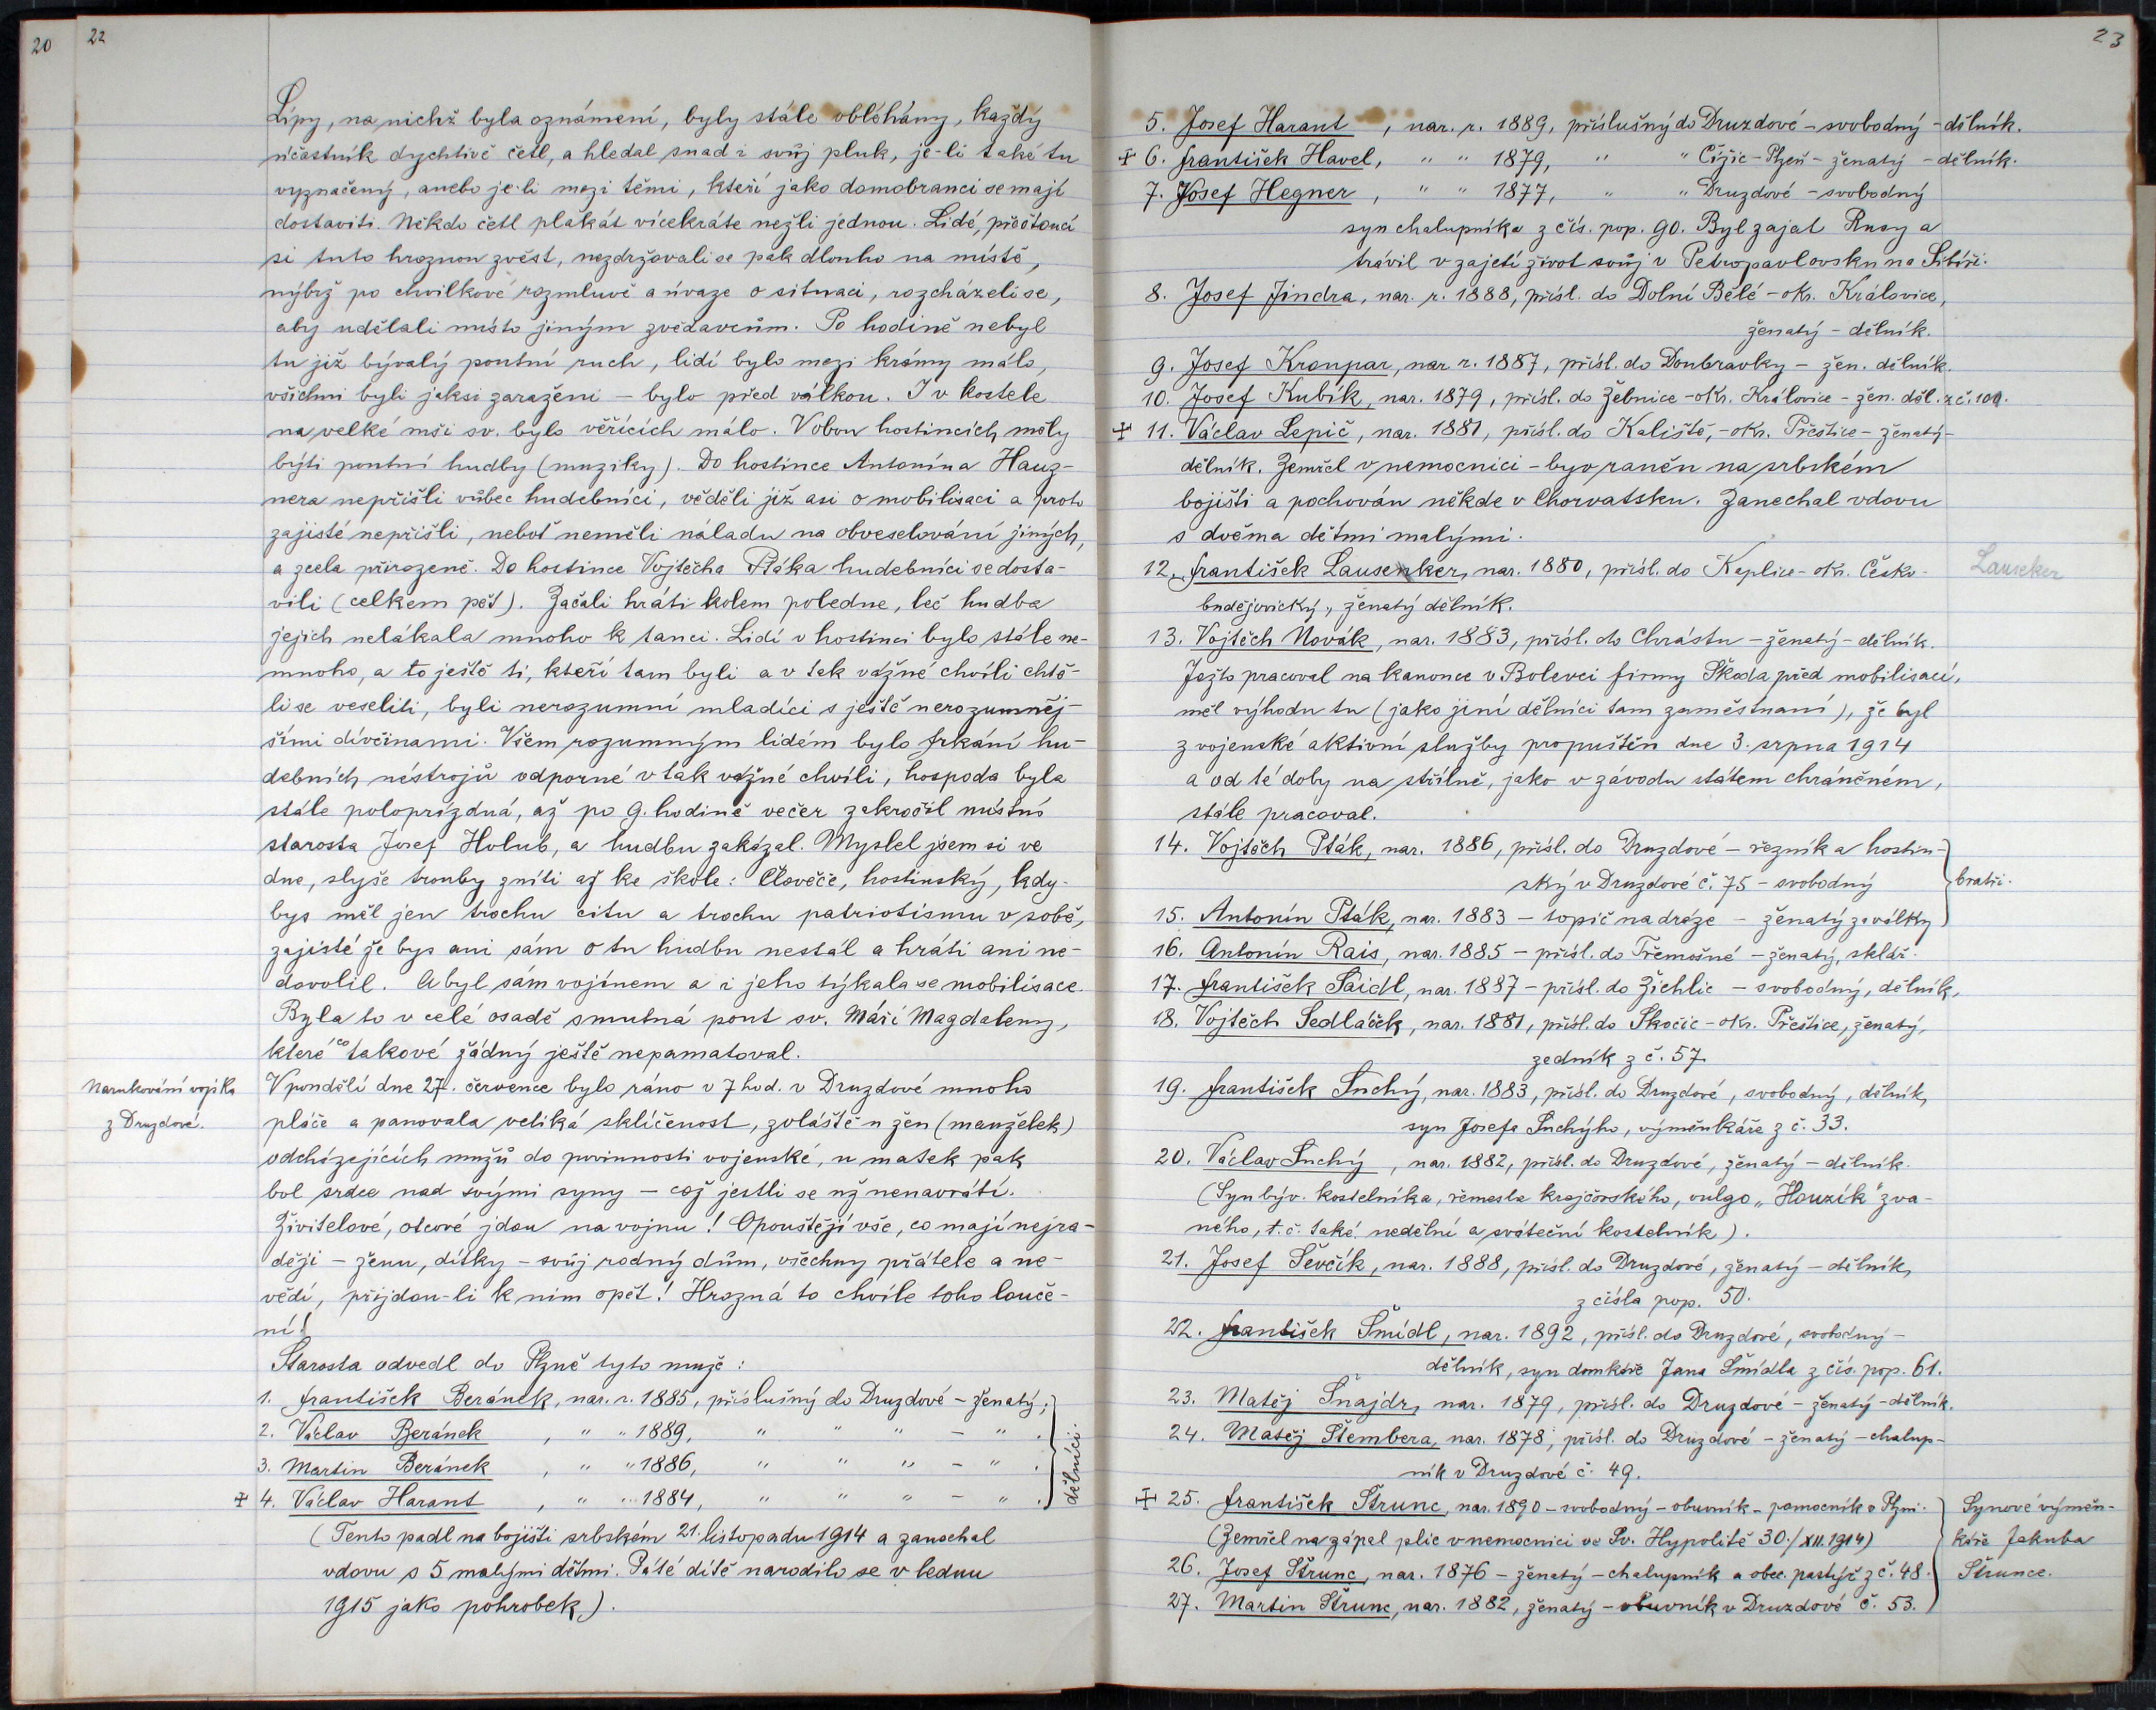 20
22
Lípy, na nichž byla oznámení, byly stále obléhány, každý
účastník dychtivě četl, a hledal snad i svůj pluk, je-li také tu
vyznačený, anebo je-li mezi těmi, kteří jako domobranci se mají
dostaviti. Někdo četl plakát vícekráte nežli jednou. Lidé, přečtouci
si tuto hroznou zvěst, nezdržovali se pak dlouho na místě,
nýbrž po chvilkové rozmluvě a úvaze o situaci, rozcházeli se,
aby udělali místo jiným zvědavcům. Po hodině nebyl
tu již bývalý poutní ruch, lidí bylo mezi krámy málo,
všichni byli jaksi zaraženi – bylo před válkou. I v kostele
na velké mši sv. bylo věřících málo. V obou hostincích měly
býti poutní hudby (muziky). Do hostince Antonína Hauz-
nera nepřišli vůbec hudebníci, věděli již asi o mobilisaci a proto
zajisté nepřišli, neboť neměli náladu na obveselování jiných,
a zcela přirozeně. Do hostince Vojtěcha Ptáka hudebníci se dosta-
vili (celkem pět). Začali hráti kolem poledne, leč hudba
jejich nelákala mnoho k tanci. Lidí v hostinci bylo stále ne-
mnoho, a to ještě ti, kteří tam byli a v tak vážné chvíli chtě-
li se veseliti, byli nerozumní mladíci s ještě nerozumněj-
šími dívčinami. Všem rozumným lidem bylo frkání hu-
debních nástrojů odporné v tak vážné chvíli, hospoda byla
stále poloprázdná, až po 9. hodině večer zakročil místní
starosta Josef Holub, a hudbu zakázal. Myslel jsem si ve
dne, slyše trouby zníti až ke škole: Člověče, hostinský, kdy-
bys měl jen trochu citu a trochu patriotismu v sobě,
zajisté že bys ani sám o tu hudbu nestál a hráti ani ne-
dovolil. A byl sám vojínem a i jeho týkala se mobilisace.
Byla to v celé osadě smutná pout sv. Máří Magdaleny,
které co takové žádný ještě nepamatoval.
Narukování vojska
z Druzdové.
V pondělí dne 27. července bylo ráno v 7 hod. v Druzdové mnoho
pláče a panovala veliká sklíčenost, zvláště u žen (manželek)
odcházejících mužů do povinnosti vojenské, u matek pak
bol srdce nad svými syny – což jestli se už nenavrátí.
Živitelové, otcové jdou na vojnu! Opouštějí vše, co mají nejra-
ději – ženu, dítky – svůj rodný dům, všechny přátele a ne-
vědí, přijdou-li k nim opět! Hrozná to chvíle toho louče-
ní!
Starosta odvedl do Plzně tyto muže:
1. František Beránek, nar. r. 1885, příslušný do Druzdové – ženatý;
2. Václav Beránek, " " 1889, " " " – " .
3. Martin Beránek, " " 1886, " " " – " .
✠ 4. Václav Harant, " " 1884, " " " – " .
dělníci.
(Tento padl na bojišti srbském 21. listopadu 1914 a zanechal
vdovu s 5 malými dětmi. Páté dítě narodilo se v lednu
1915 jako pohrobek).
23
5. Josef Harant, nar. r. 1889, příslušný do Druzdové – svobodný – dělník.
✠ 6. František Havel, " " 1879, " " Čižic – Plzeň – ženatý – dělník.
7. Josef Hegner, " " 1877, " " Druzdové – svobodný
syn chalupníka z čís. pop. 90. Byl zajat Rusy a
trávil v zajetí život svůj v Petropavlovsku na Sibiři.
8. Josef Jindra, nar. r. 1888, přísl. do Dolní Bělé – okr. Kralovice,
ženatý – dělník.
9. Josef Kroupar, nar. r. 1887, přísl. do Doubravky – žen. dělník.
10. Josef Kubík, nar. 1879, přísl. do Žebnice – okr. Kralovice – žen. děl. z č. 100.
✠ 11. Václav Lepič, nar. 1881, přísl. do Kaliště, – okr. Přeštice – ženatý –
dělník. Zemřel v nemocnici – byv raněn na srbském
bojišti a pochován někde v Chorvatsku. Zanechal vdovu
s dvěma dětmi malými.
12. František Lausenker, nar. 1880, přísl. do Kaplice – okr. Česko-
budějovický, ženatý dělník.
Lauseker
13. Vojtěch Novák, nar. 1883, přísl. do Chrástu – ženatý – dělník.
Ježto pracoval na kanonce v Bolevci firmy Škoda před mobilisací,
měl výhodu tu (jako jiní dělníci tam zaměstnaní), že byl
z vojenské aktivní služby propuštěn dne 3. srpna 1914
a od té doby na střílně, jako v závodu státem chráněném,
stále pracoval.
14. Vojtěch Pták, nar. 1886, přísl. do Druzdové – řezník a hostin-
ský v Druzdové č. 75 – svobodný
bratři.
15. Antonín Pták, nar. 1883 – topič na dráze – ženatý za války
16. Antonín Rais, nar. 1885 – přísl. do Třemošné – ženatý, sklář.
17. František Saidl, nar. 1887 – přísl. do Žichlic – svobodný, dělník,
18. Vojtěch Sedláček, nar. 1881, přísl. do Skočic – okr. Přeštice, ženatý,
zedník z č. 57.
19. František Suchý, nar. 1883, přísl. do Druzdové, svobodný, dělník,
syn Josefa Suchýho, výměnkáře z č. 33.
20. Václav Suchý, nar. 1882, přísl. do Druzdové, ženatý – dělník.
(Syn býv. kostelníka, řemesla krejčovského, vulgo „Houzík" zva-
ného, t. č. také nedělní a sváteční kostelník).
21. Josef Ševčík, nar. 1888, přísl. do Druzdové, ženatý – dělník,
z čísla pop. 50.
22. František Šmídl, nar. 1892, přísl. do Druzdové, svobodný –
dělník, syn domkáře Jana Šmídla z čís. pop. 61.
23. Matěj Šnajdr, nar. 1879, přísl. do Druzdové – ženatý – dělník.
24. Matěj Štembera, nar. 1878, přísl. do Druzdové – ženatý – chalup-
ník v Druzdové č. 49.
✠ 25. František Štrunc, nar. 1890 – svobodný – obuvník – pomocník v Plzni.
(Zemřel na zápal plic v nemocnici ve Sv. Hypolitě 30./XII. 1914)
26. Josef Štrunc, nar. 1876 – ženatý – chalupník a obec. pastýř z č. 48.
27. Martin Štrunc, nar. 1882, ženatý – obuvník v Druzdové č. 53.
Synové výměn-
káře Jakuba
Štrunce.